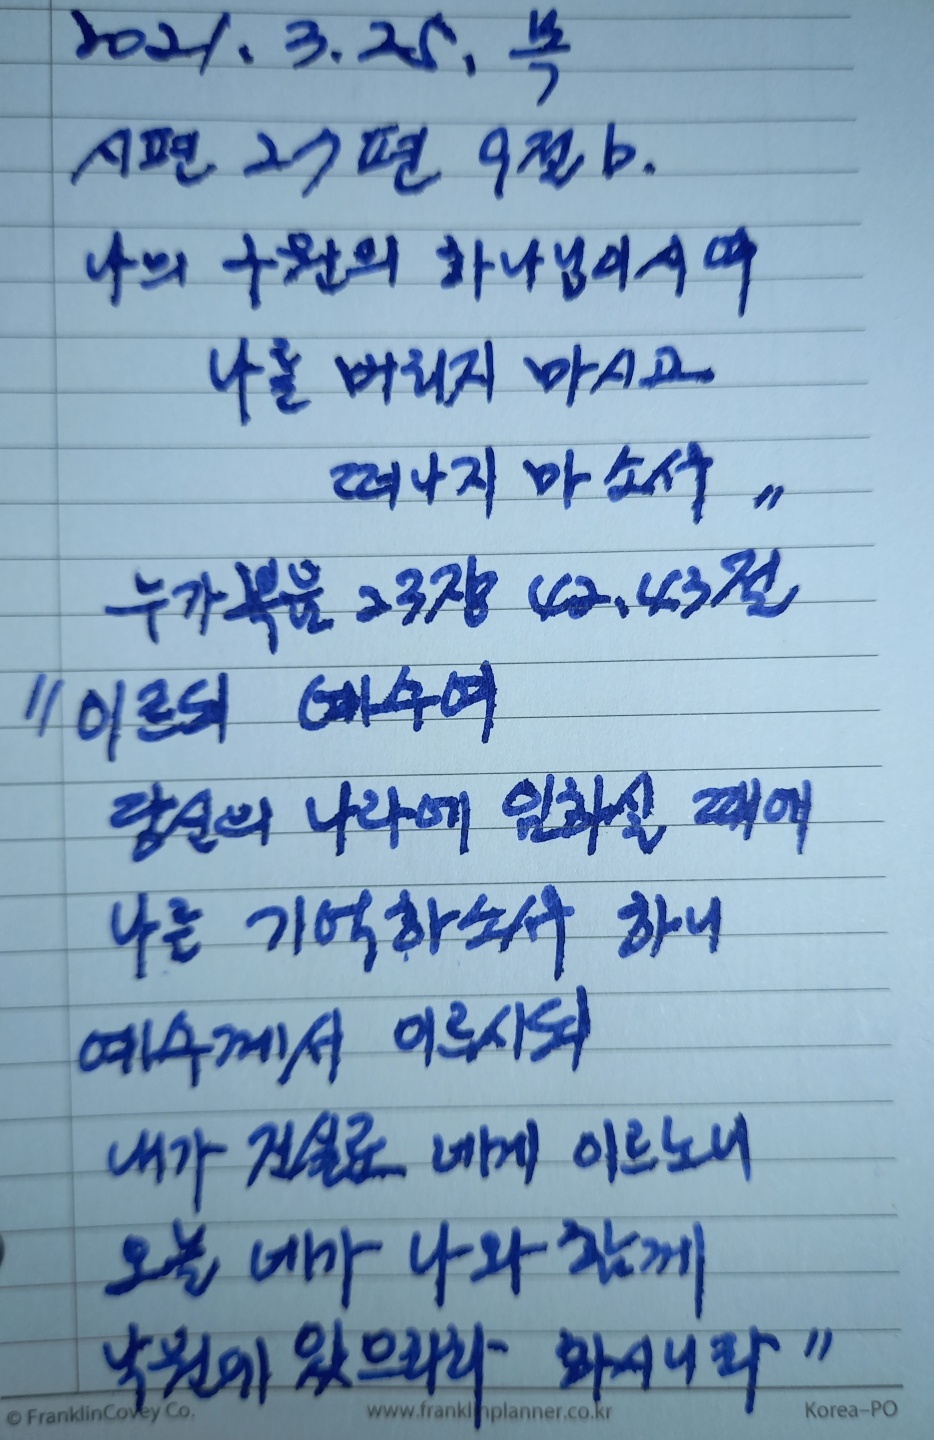 2021. 3. 25. 목
시편 27편 9절 b.
나의 구원의 하나님이시여
나를 버리지 마시고
떠나지 마소서 "
누가복음 23장 42.43절
" 이르되 예수여
당신의 나라에 임하실 때에
나를 기억하소서 하니
예수께서 이르시되
내가 진실로 네게 이르노니
오늘 네가 나와 함께
낙원에 있으리라 하시니라 "
© FranklinCovey Co. www.franklinplanner.co.kr Korea-PO